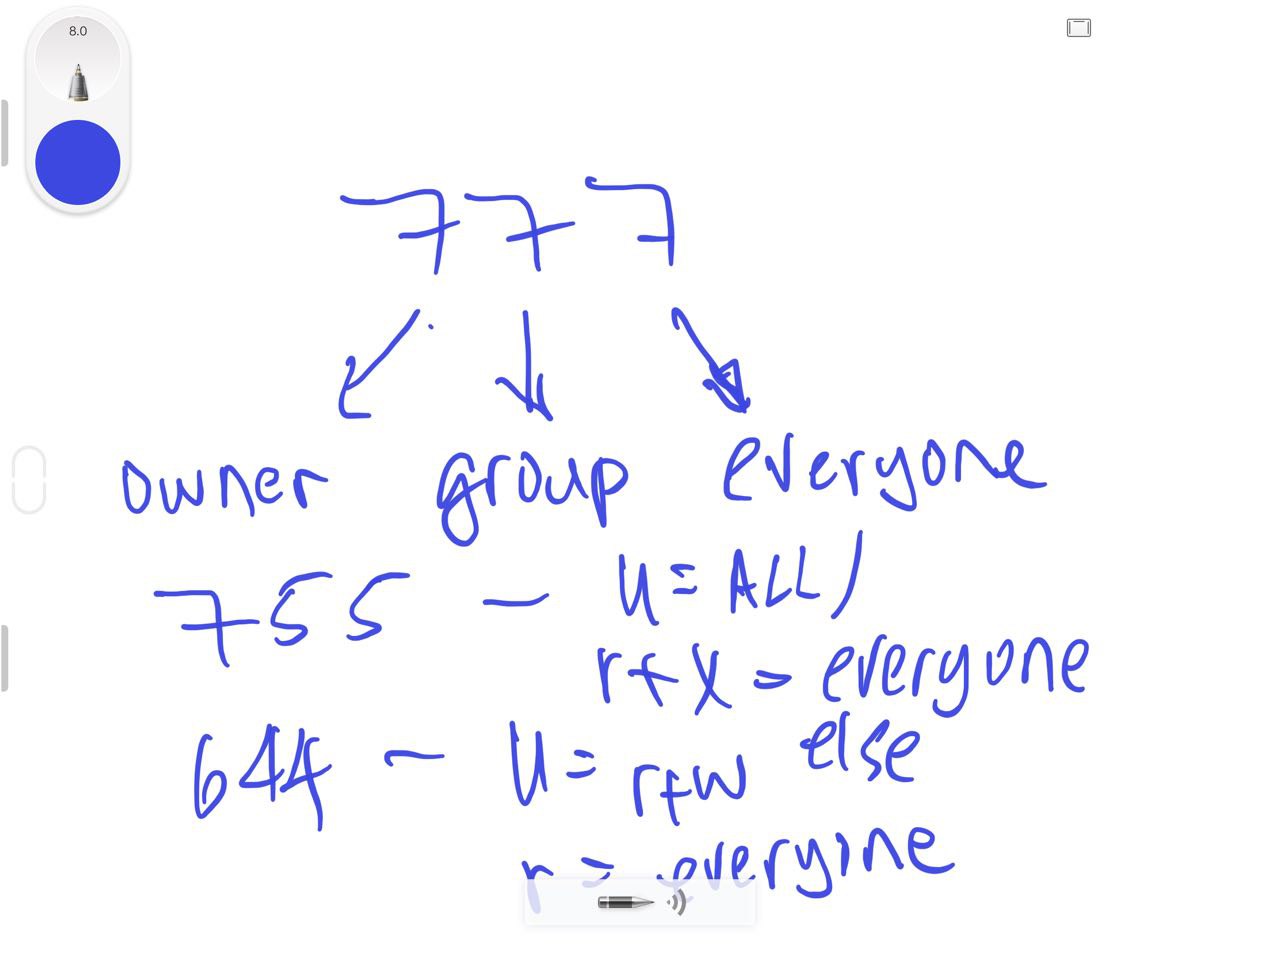 8.0
777
owner group everyone
755 - u = ALL/
r+x = everyone
else
644 - u = r+w
r = everyone